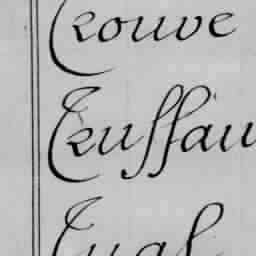 Trouve
Truffau